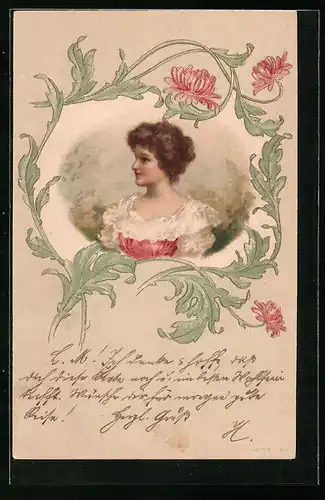 L. M.! Ich denke & hoffe, daß
dich diese Karte noch u. im besten Wohlsein
trifft. Wünsche dir für morgen gute
Reise! Herzl. Gruß
H.